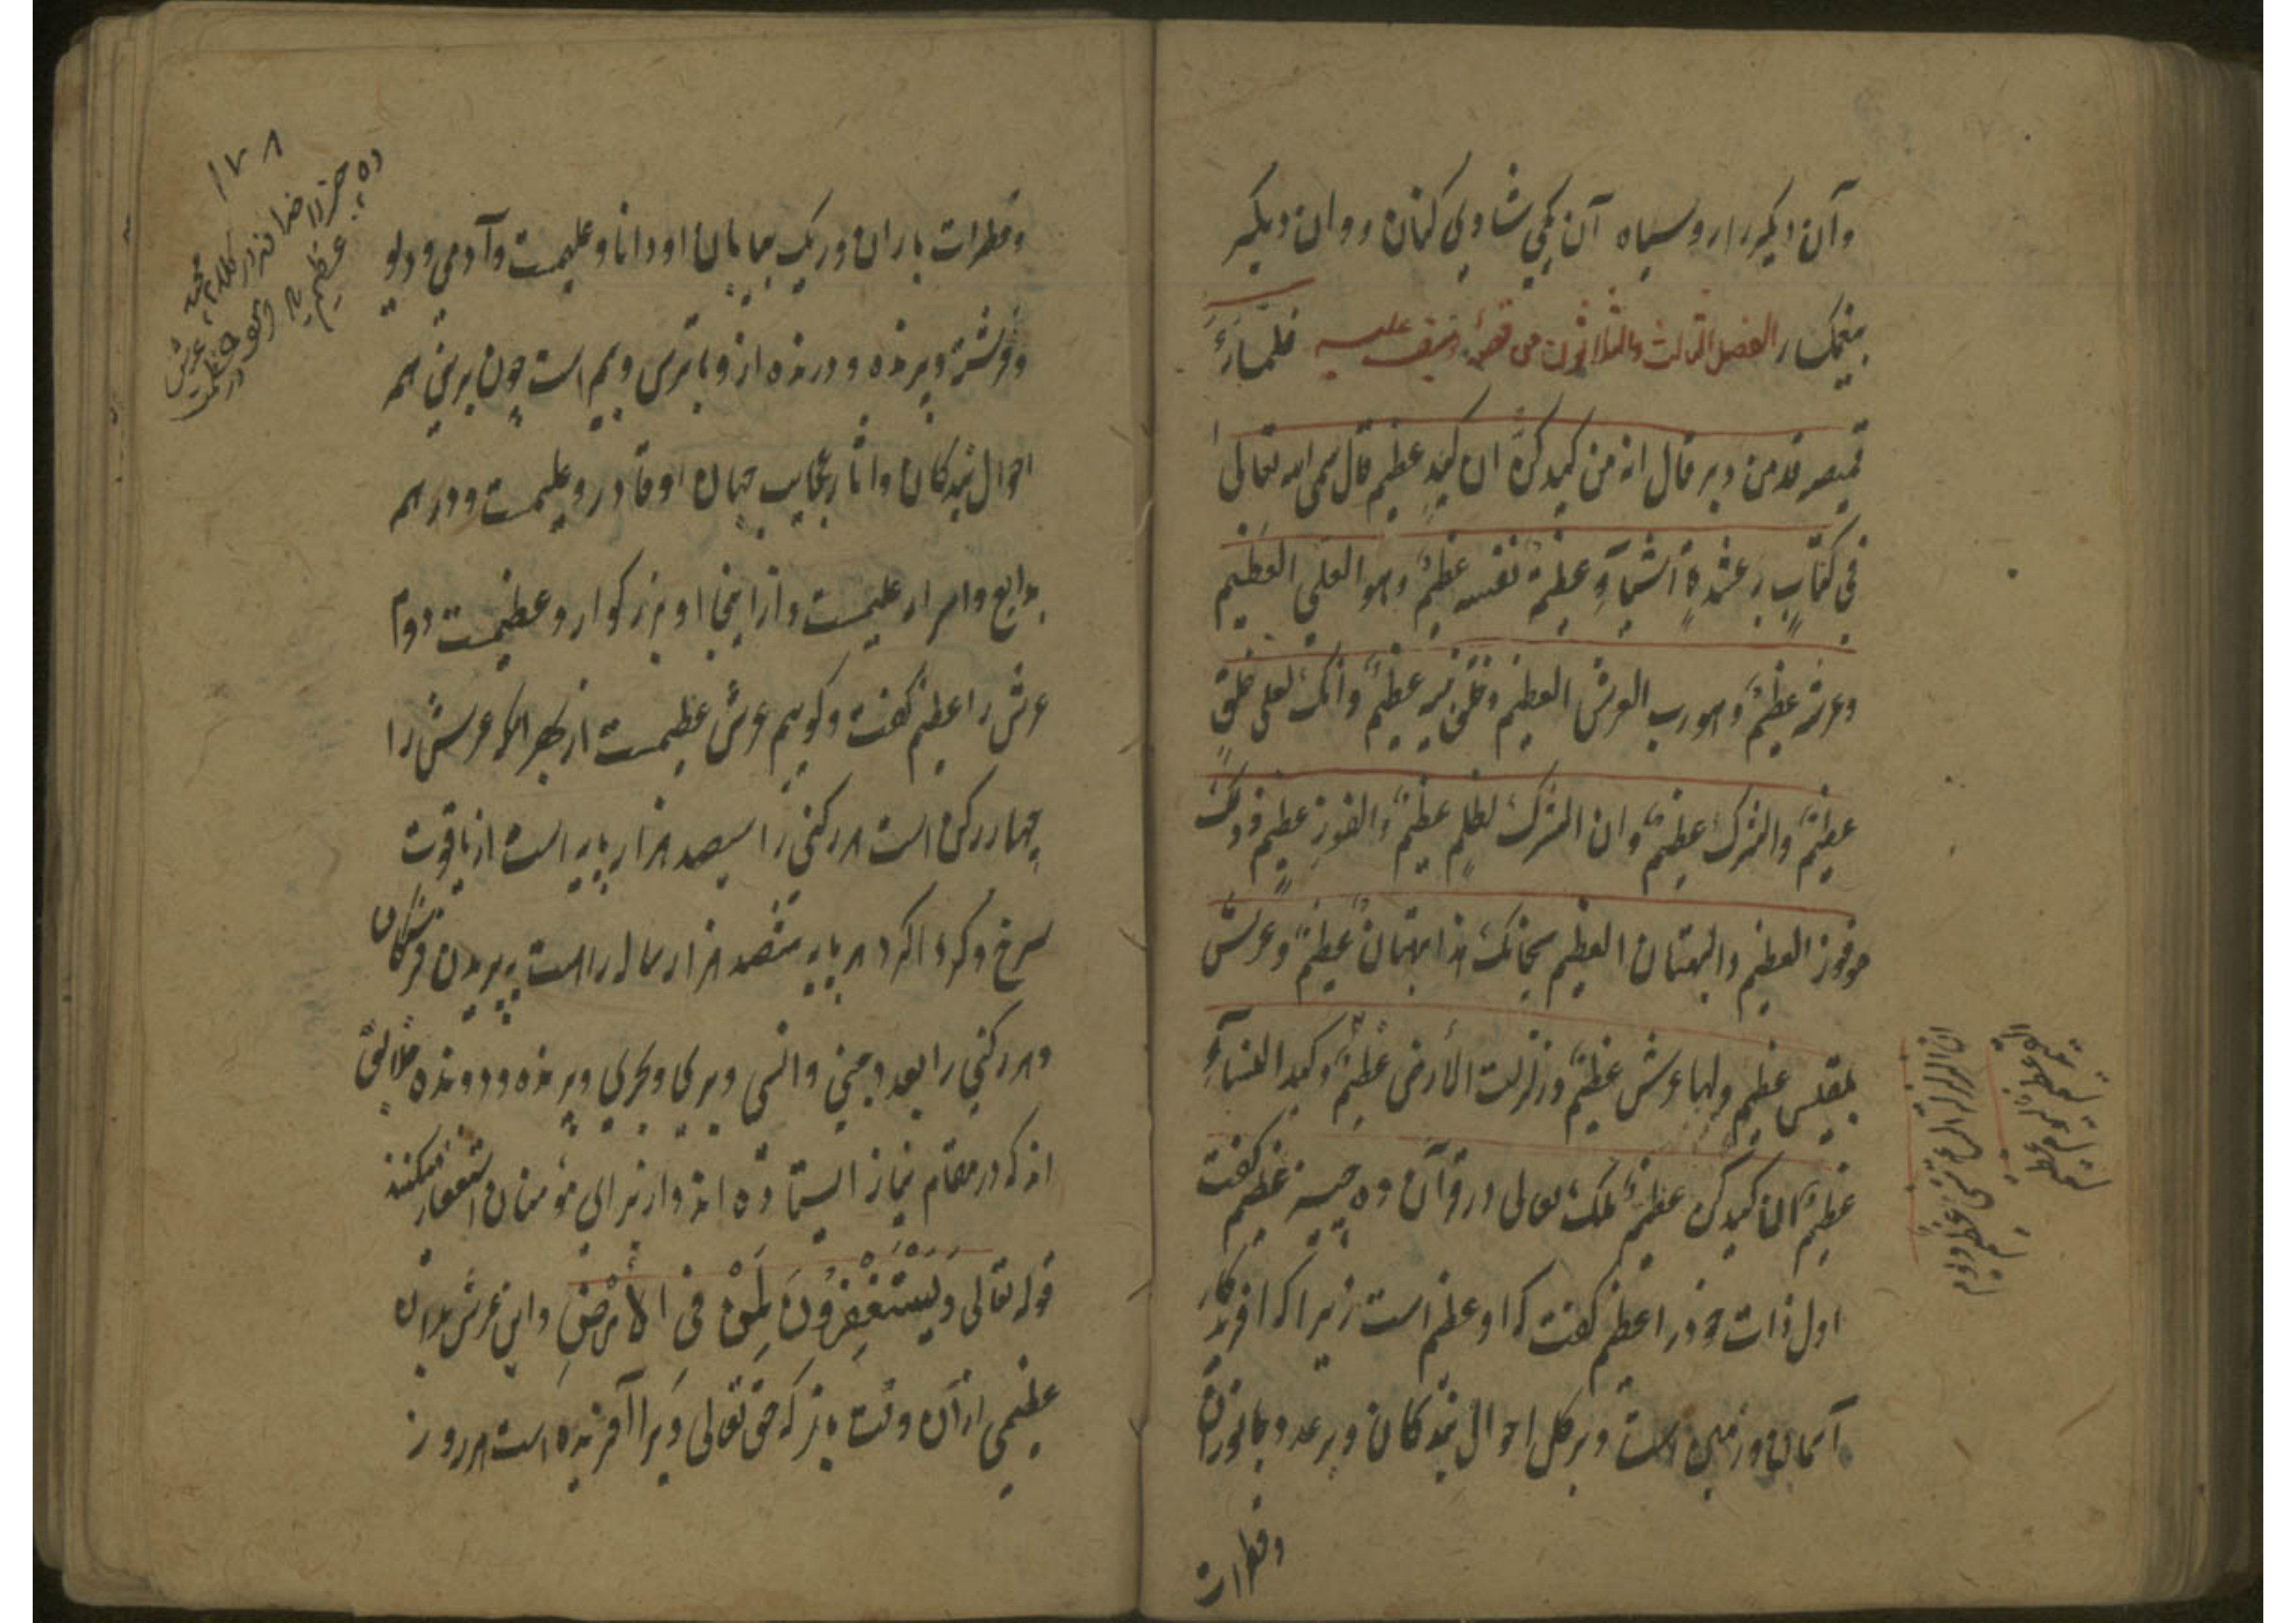 وآن دیکر را روسیاه آن یکی شادی کنان رو وان دیکر
غمکسار الفصل الثالث والثلاثون من قصه یوسف علیه فلما رء
قمیصه قد من دبر قال انه من کیدکن ان کیدکن عظیم قال سمی الله تعالی
فی کتابه عشرة اشیآء عظیمة نفسه عظیم وهو العلی العظیم
وعرشه عظیم وهو رب العرش العظیم وخلق نبیه عظیم وانک لعلی خلق
عظیم والشرک عظیم وان الشرک لظلم عظیم والفوز عظیم وذلک
هو فوز العظیم والبهتان العظیم سبحانک هذا بهتان عظیم وعرش
بلقیس عظیم ولها عرش عظیم وزلزلت الأرض عظیم وکید النسآء
عظیم ان کیدکن عظیم ملک تعالی در قرآن ده چیز عظیم کفت
اول ذات خود را عظیم کفت که او عظیم است زیرا که افریدکار
آسمان و زمین است و بر کل احوال بندکان و بر عدد جانوران
وقطرات
ان الزلزلة الساعة شیء عظیم
۱۷۸
ده چیز را خدا در کلام مجید
عظیم
وقطرات باران و ریک بیابان او دانا و علیمست و آدمی و دیو
و فرشته و پرنده و درنده ازو با ترس و بیم است چون برین همه
احوال بندکان و اثار عجایب جهان او قادر و علیمست و در همه
بدایع و اسرار علیمست و از اینجا او بزرکوار و عظیمست دوم
عرش را عظیم کفت و کوییم عرش عظیمست از بهر انکه عرش را
چهار رکن است هر رکنی را سیصد هزار پایه است از یاقوت
سرخ و کرد اکرد هر پایه هفتصد هزار ساله راهست پپریدن فرشتکان
و هر رکنی را بعدد جنی و انسی و بری و بحری و پرنده و دونده خلایق
اند که در مقام نماز ایستاده اند و از برای مؤمنان استغفار میکنند
قوله تعالی ویستغفرون لمن فی الأرض و این عرش بدان
عظیمی از آن وقت باز که حق تعالی ویرا آفریده است هر روز